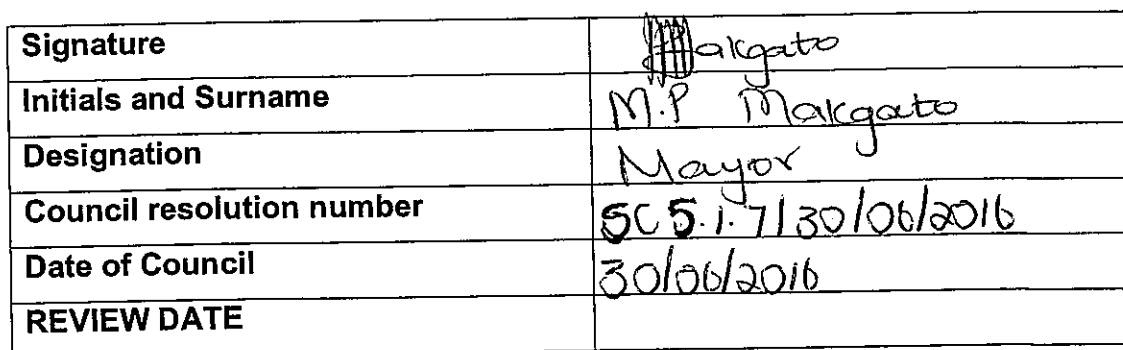 Signature Makgato
Initials and Surname M.P Makgato
Designation Mayor
Council resolution number SC 5.1.7/30/06/2016
Date of Council 30/06/2016
REVIEW DATE